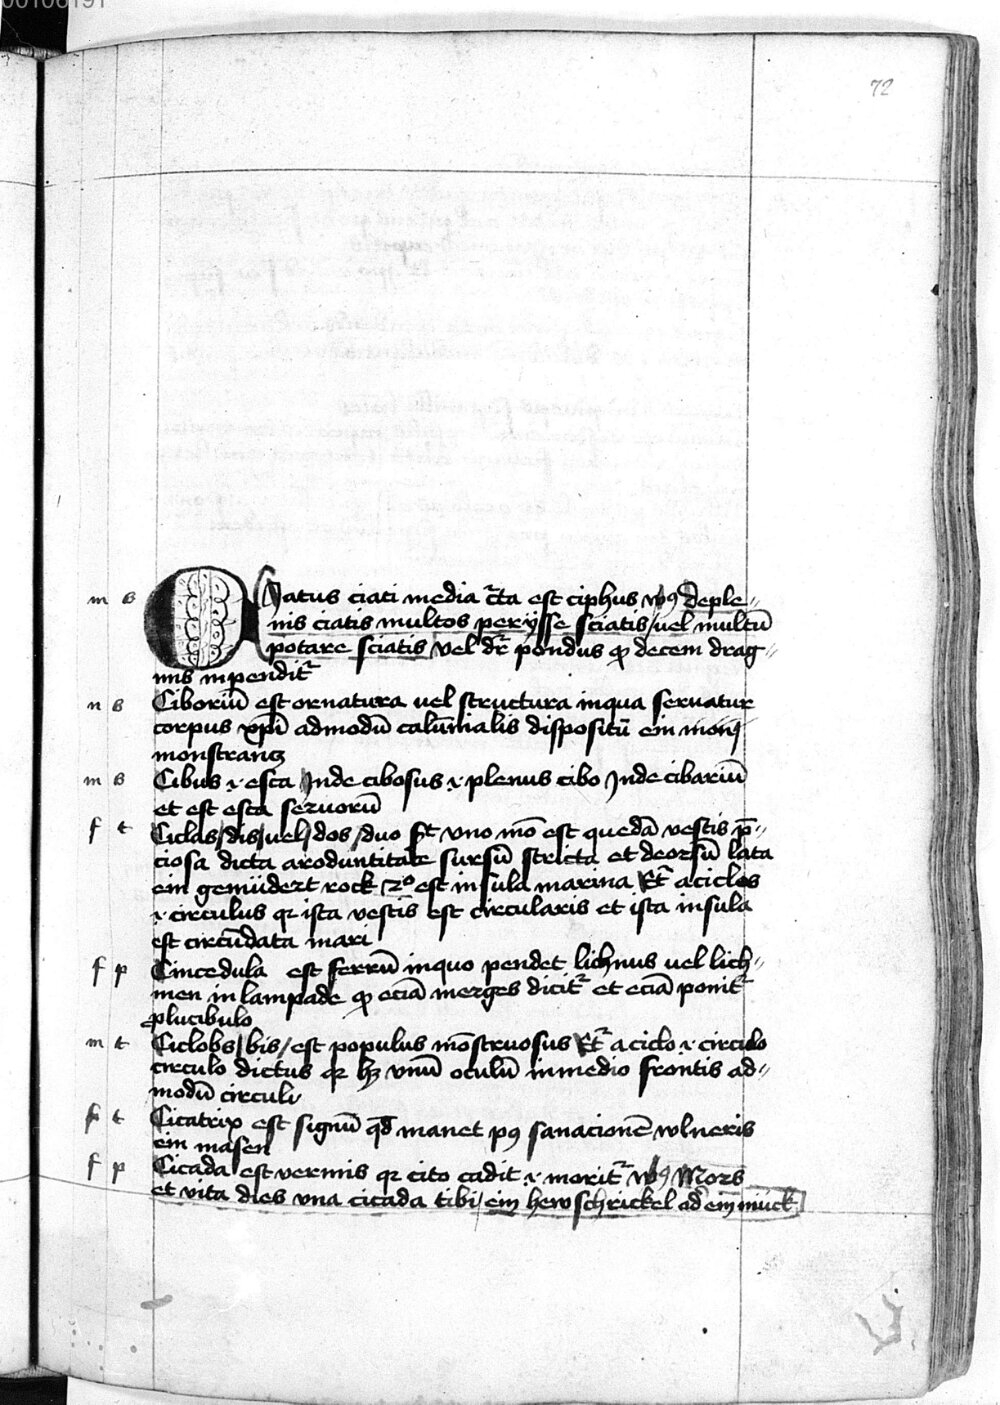 72
m s Ciatus ciati media cīta est ciphus vs9 deple⸗
nis ciatis multos perijsse sciatis / vel multū
potare sciatis vel dr̄ pondus qd decem drag⸗
mis inpendit̄
n s Ciboriū est ornatura vel structura inqua seruatur
corpus xp̄i admodū calūnialis dispositū ein
monstrantz
m s Cibus .i. esca Jnde cibosus .i. plenus cibo Jnde cibariū
et est esca seruorū
f t Ciclas / dis / vel / dos / duo sc̄ vno mō est quedā vestis p̄⸗
ciosa dicta aroduntitate sursū stricta et deorsū lata
ein gemüdert rock 2o est insula marina Et̄ a ciclos
.i. circulus qr ista vestis est circularis et ista insula
est circūdata mari
f p Cincedula est ferrū inquo pendet lichnus vel lich⸗
men in lampade qd eciā merges dicit̄ et eciā ponit̄
plucibulo
m t Ciclobs / bis / est populus mōstruosus Et̄ a ciclo .i. circulo
circulo dictus qr hz vnū oculū inmedio frontis ad⸗
modū circuli
f t Cicatrix est signū qd manet p9 sanacionē wlneris
ein masen
f p Cicada est vermis qr cito cadit .i. morit̄ vs9 Mors
et vita dies vna cicada tibi / ein hewschrickel ad ein mück